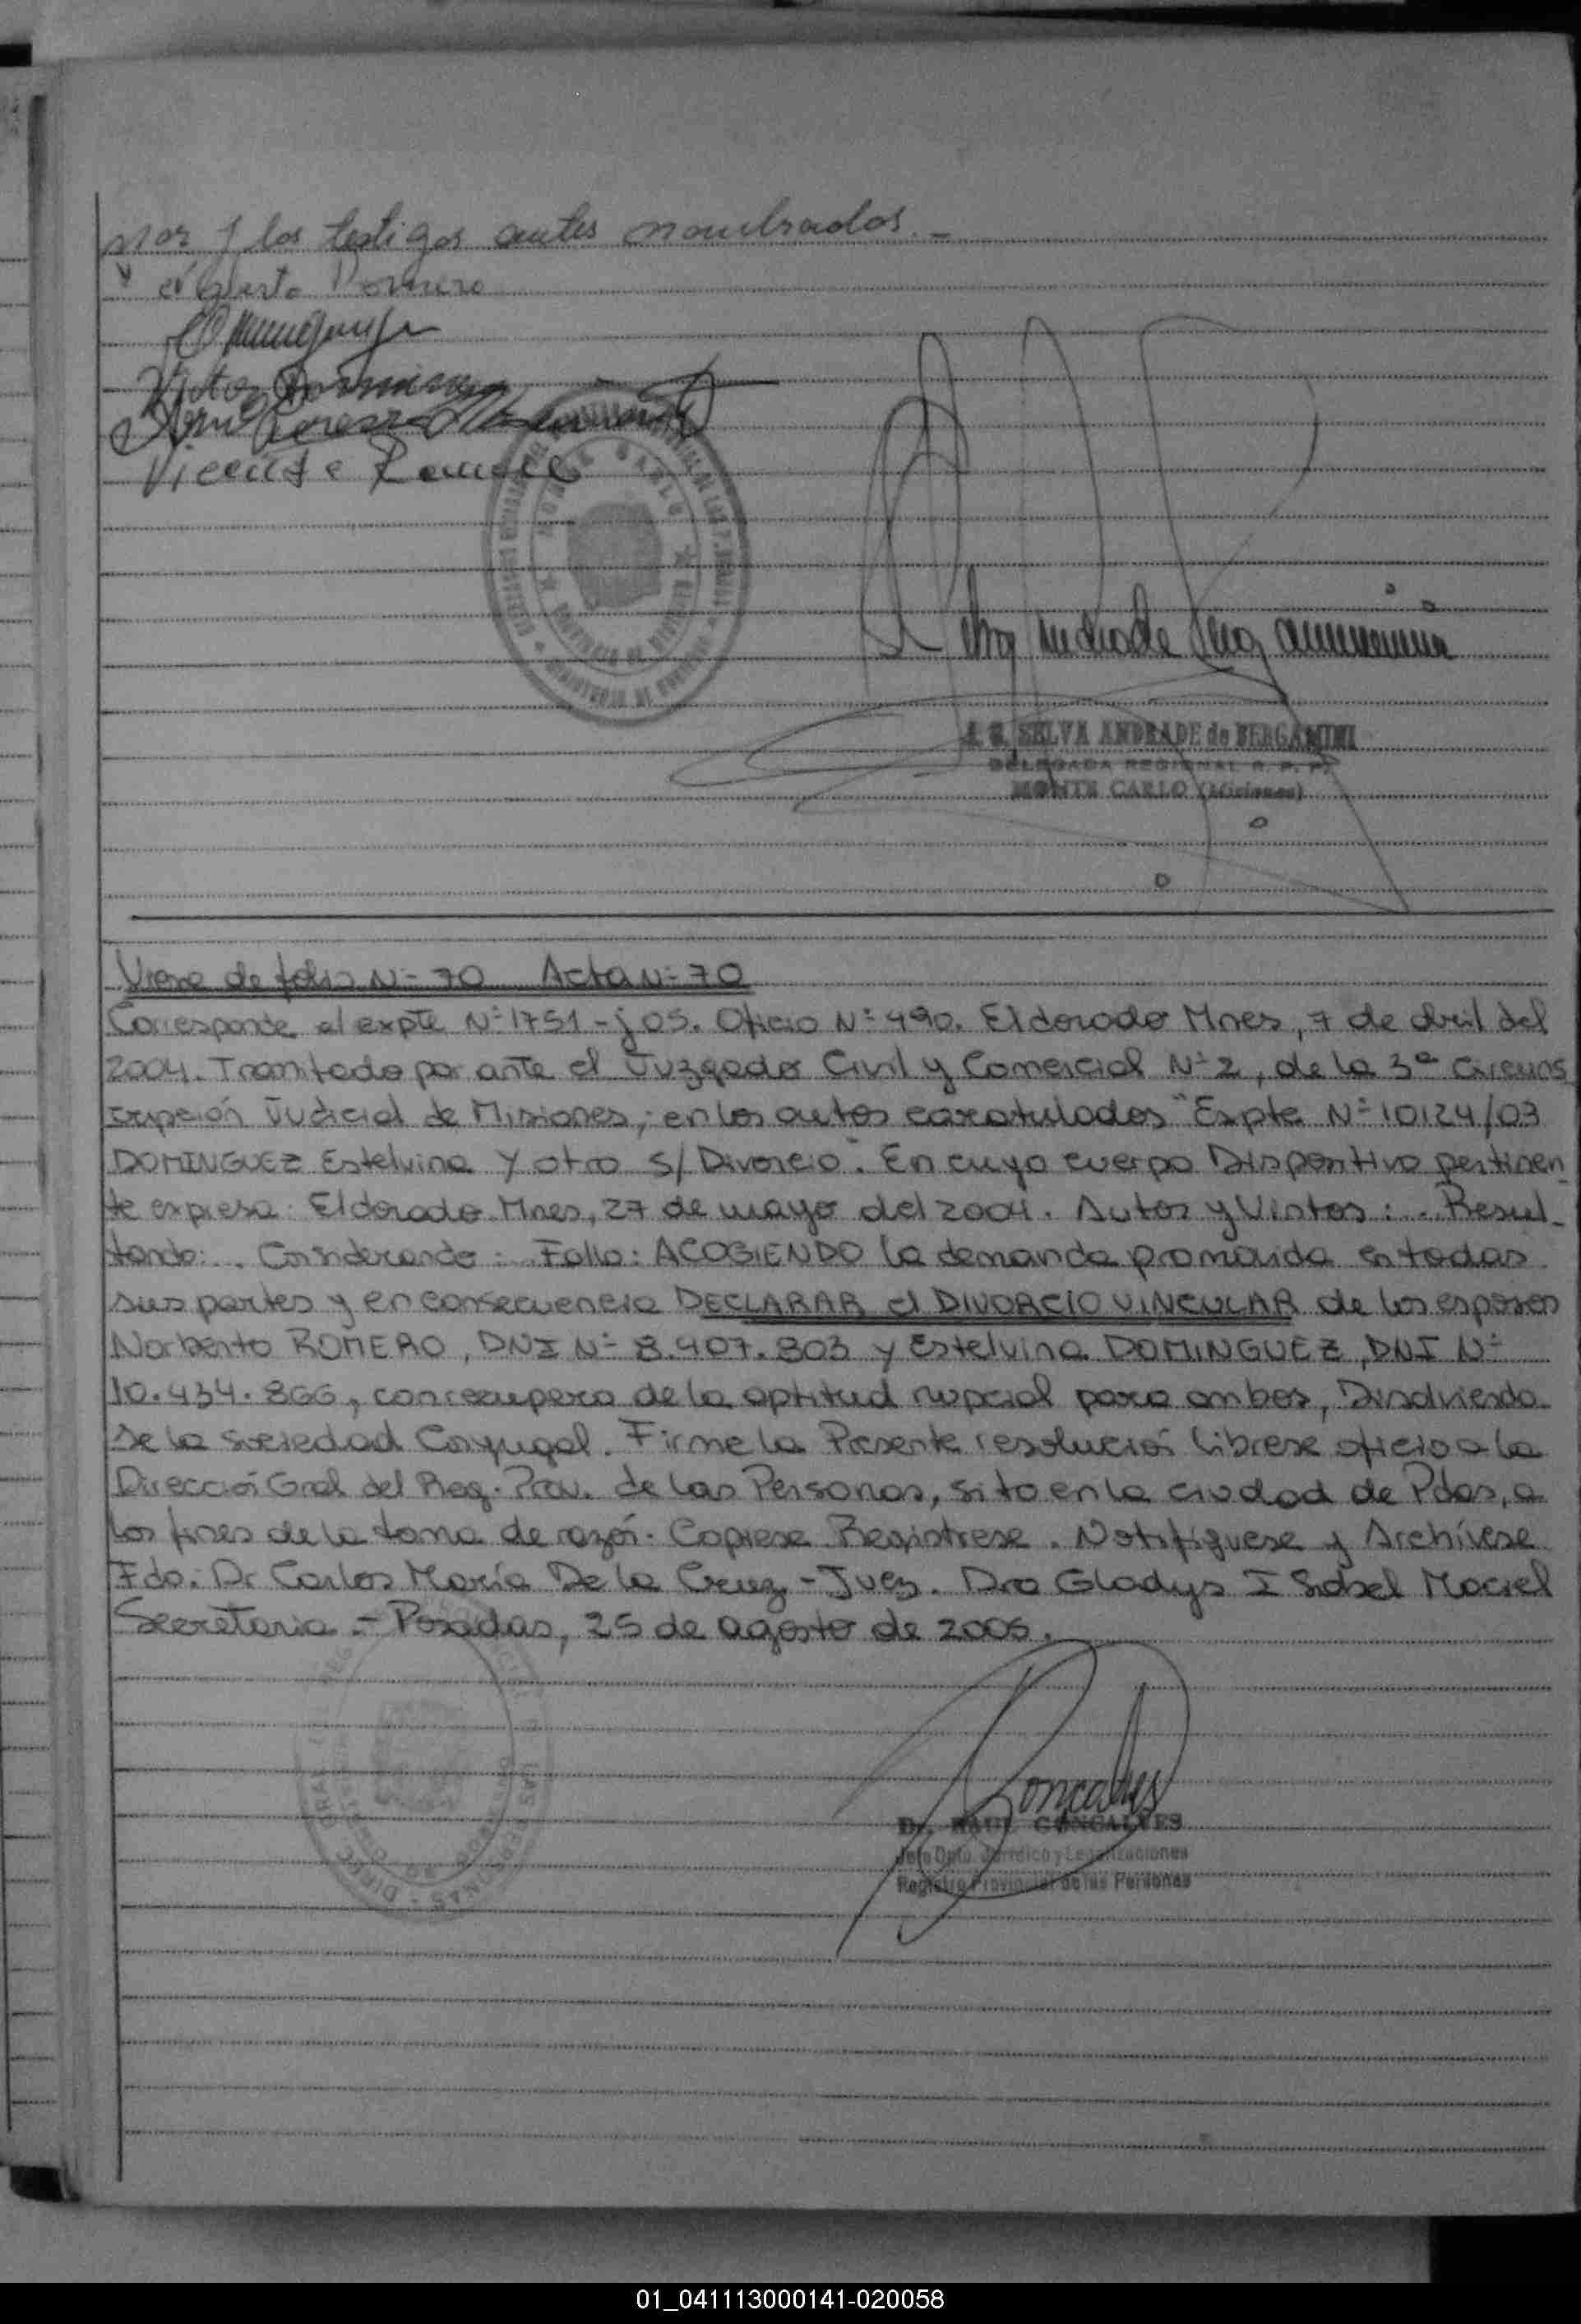 y los testigos antes nombrados. -
Romero
Victor
Vicente
MONTE CARLO
J. S. SELVA ANDRADE de BERGAMINI
DELEGADA REGIONAL R. P. P.
MONTE CARLO (Misiones)
Viene de folio N- 70 Acta N- 70
Corresponde al expte N° 1751 - J 05. Oficio N° 490. Eldorado Mnes, 7 de abril del
2004. Tramitado por ante el Juzgado Civil y Comercial N° 2, de la 3ª Circuns
cripción Judicial de Misiones; en los autos caratulados "Expte N° 10124/03
DOMINGUEZ Estelvina Y otro S/ Divorcio". En cuyo cuerpo Dispositivo pertinen
te expresa: Eldorado Mnes, 27 de mayo del 2004. Autos y Vistos: .. Resul-
tando: .. Considerando: .. Fallo: ACOGIENDO la demanda promovida en todas
sus partes y en consecuencia DECLARAR el DIVORCIO VINCULAR de los esposos
Norberto ROMERO, DNI N° 8.407.803 y Estelvina DOMINGUEZ, DNI N°
10.434.866, con recupero de la aptitud nupcial para ambos, Disolviendo
se la sociedad Conyugal. Firme la Presente resolución librese oficio a la
Dirección Gral del Reg. Prov. de las Personas, sito en la ciudad de Pdas, a
los fines de la toma de razón. Copiese Registrese. Notifíquese y Archívese
Fdo: Dr Carlos María De la Cruz - Juez. Dra Gladys Isabel Maciel
Secretaria. - Posadas, 25 de agosto de 2005.
Goncalves
Dr. RAUL GONCALVES
Jefe Dpto. Jurídico y Legalizaciones
Registro Provincial de las Personas
01_041113000141-020058